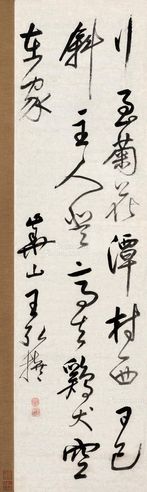 行至菊花潭村西日已
斜主人登高去鷄犬空
在家
華山王弘撰